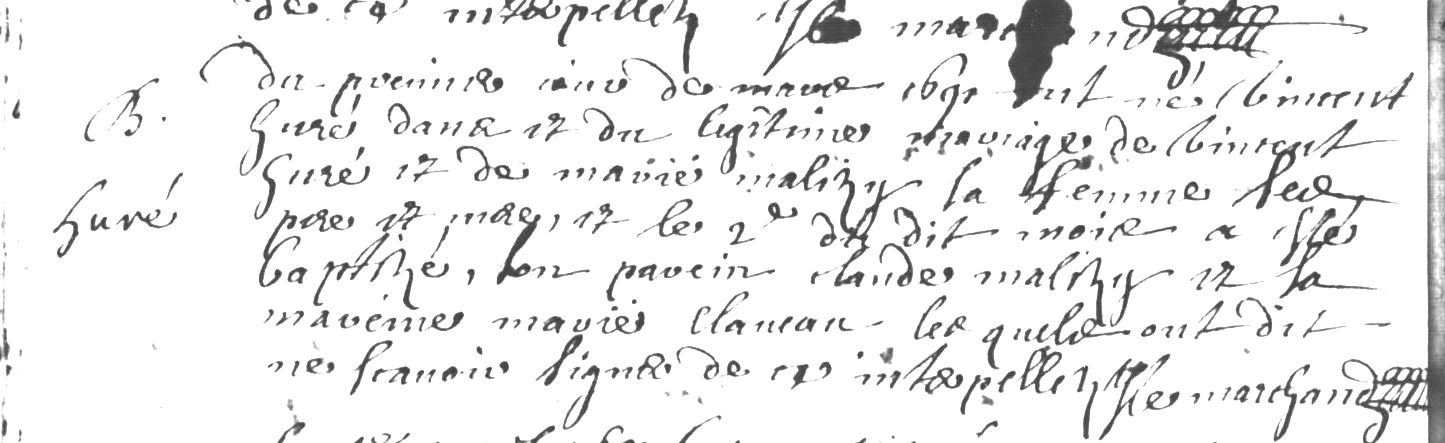 de ce interpellez / Le marchand
du premier jour de mars est né Vincent
B. huré dans et du legitime mariage de Vincent
huré et de marie malizy sa femme ses
huré pere et mere, et le 2e du dit mois a esté
baptizé, son parein claude malizy et sa
mareine marie claueau lesquels ont dit
ne scauoir signer de ce interpellez / Le marchand